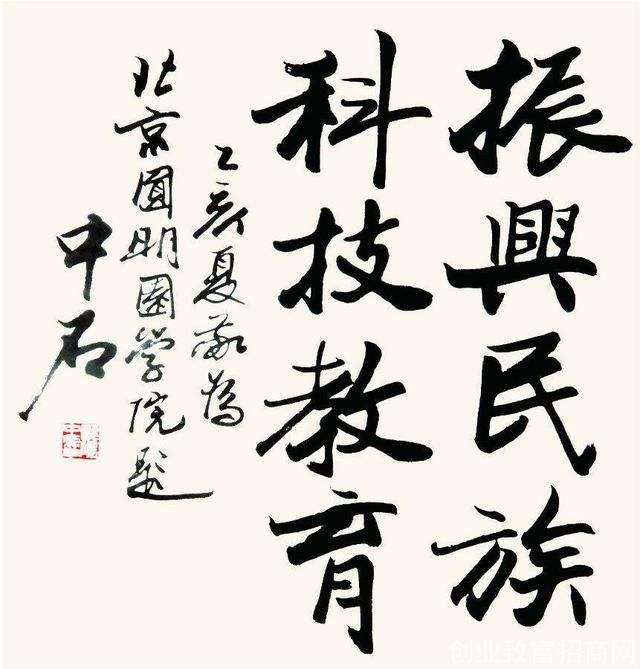 振興民族
科技教育
乙亥夏敬為
北京圓明園學院題
中石
创业致富招商网